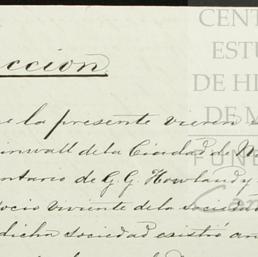 ccion
e la presente vieren
inwall de la Ciudad de N
ntario de G. G. Howland y
ocio viviente de la sociedad
dicha sociedad existió an
CENT
ESTU
DE HI
DE M